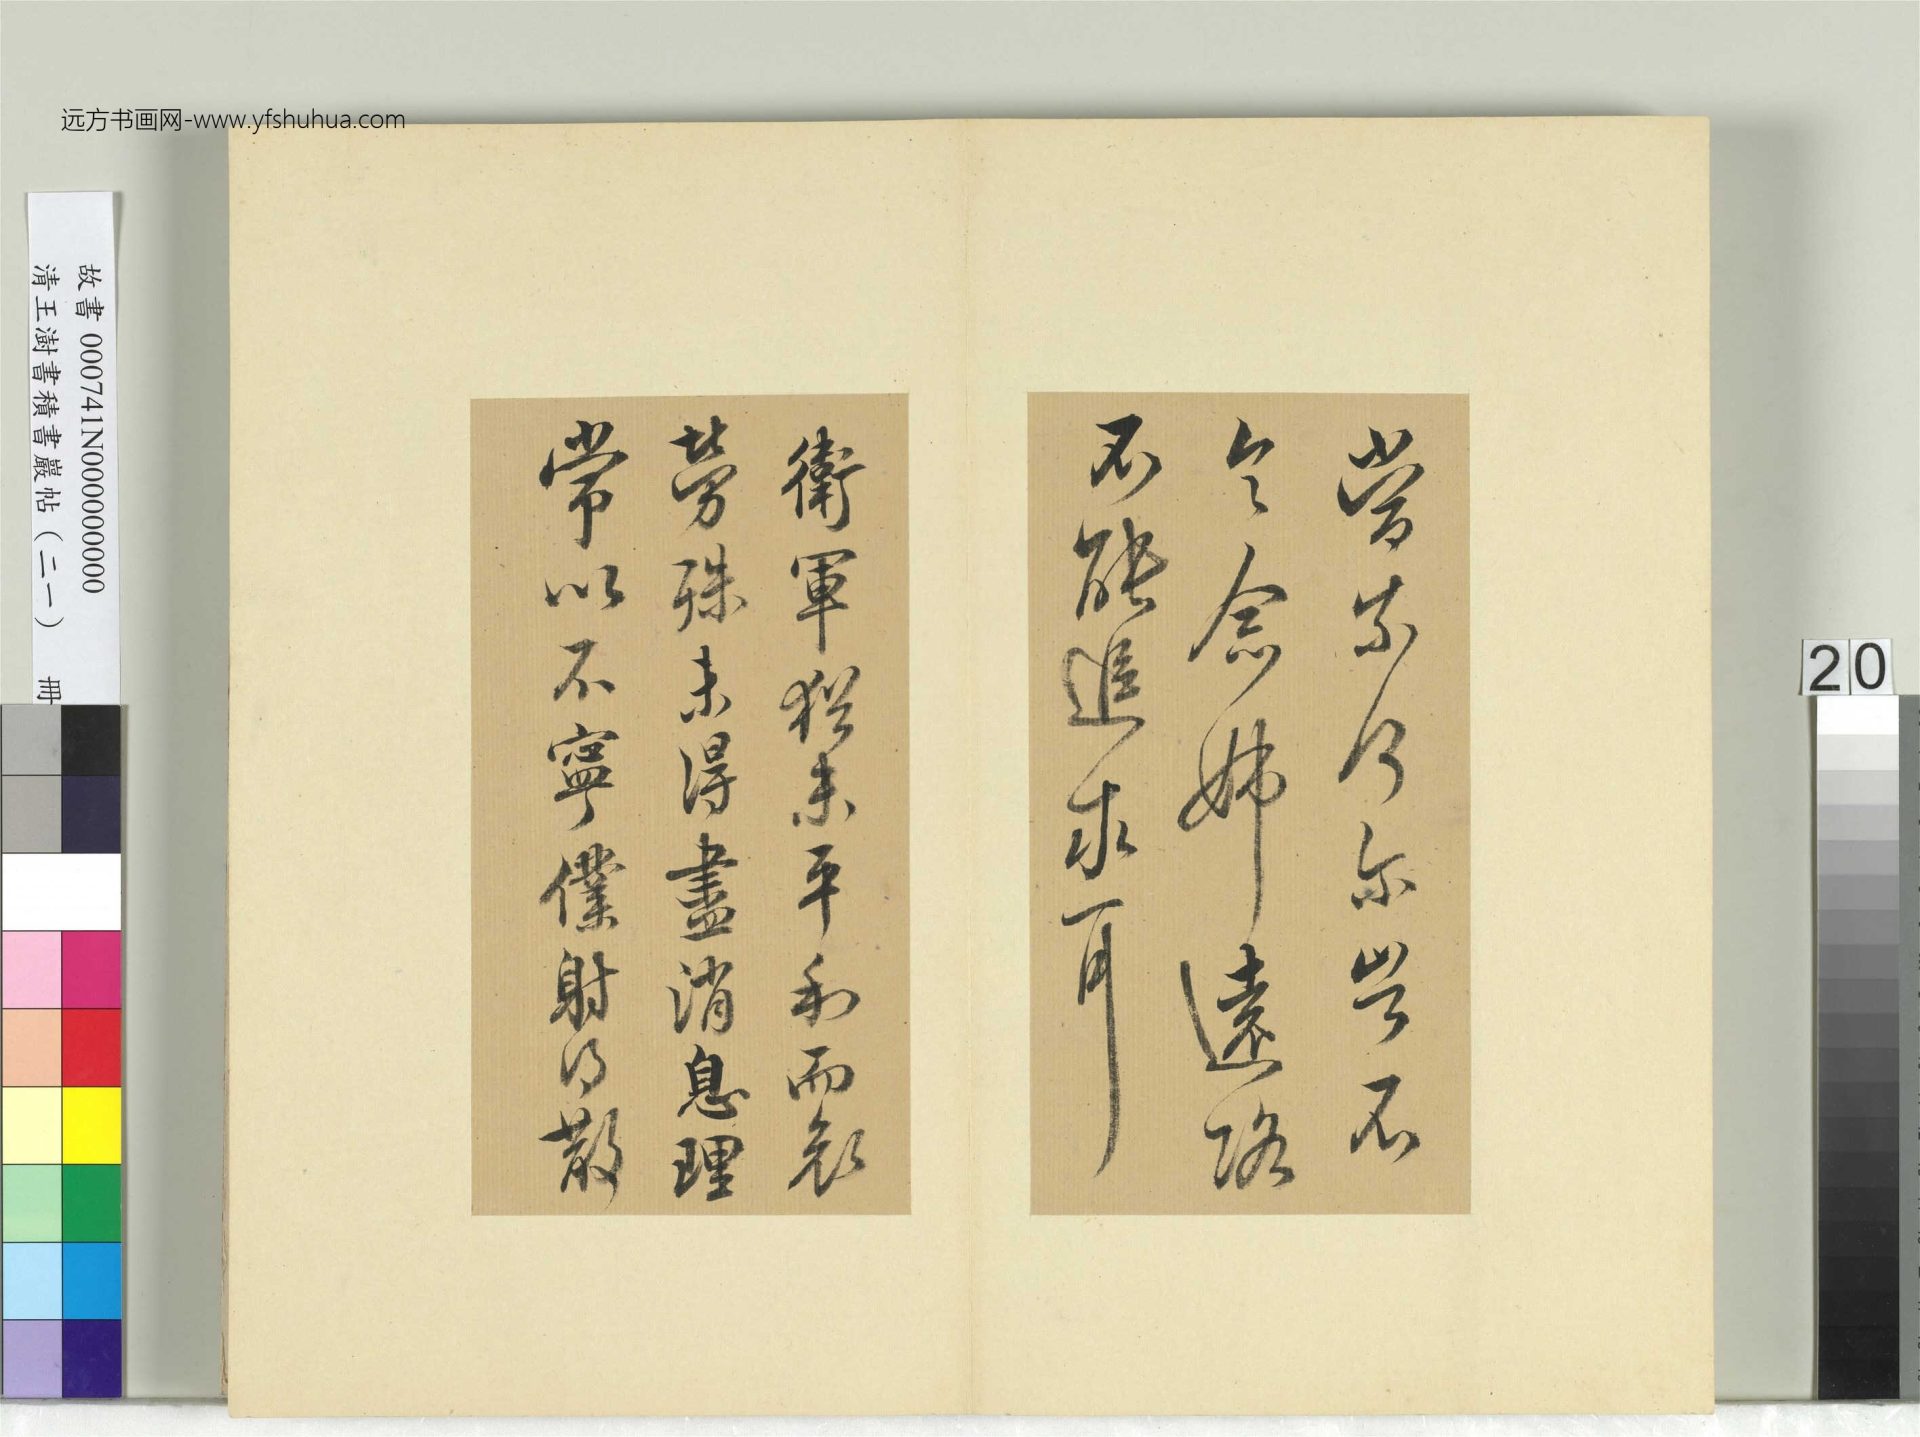 远方书画网-www.yfshuhua.com
故書 000741N000000000
清王澍書積書巖帖（二一） 冊
20
當奈何尔豈不
令念姊遠路
不能追求耳
衛軍猶未平和而哀
勞殊未得盡消息理
常以不寧僕射得散